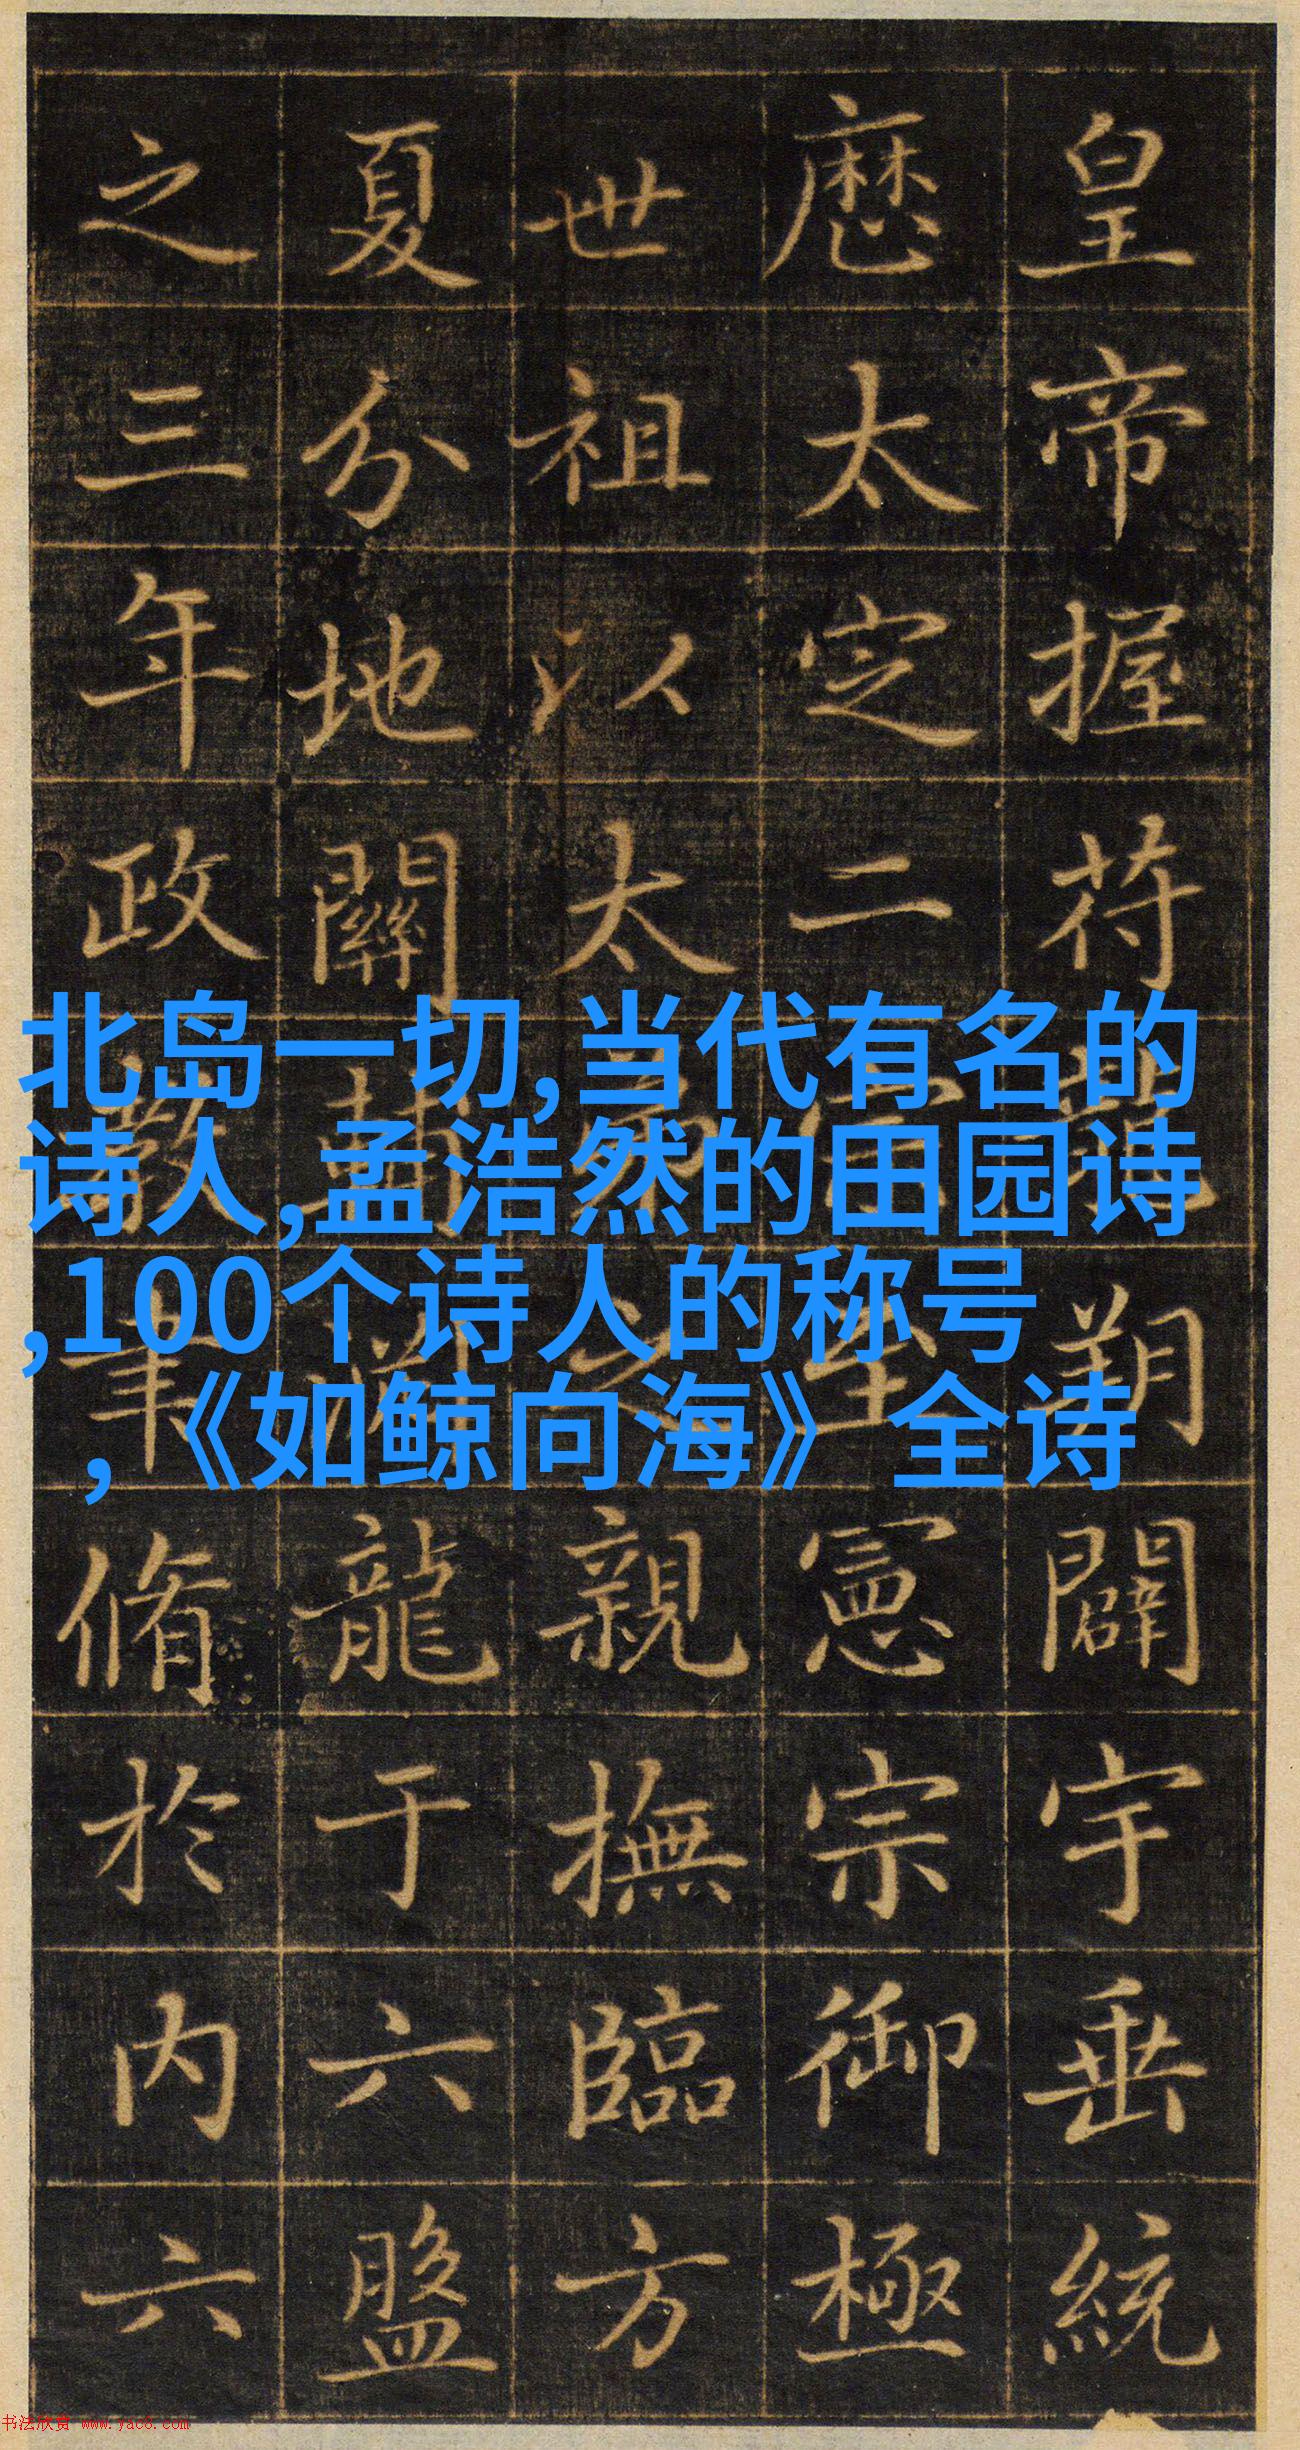 皇帝握符龍朔闢宇垂統
厯太定二宗聖憲宗御極
世祖以太弟之親撫臨方
夏分地關輔淵龍于六盤
之三年政教聿脩於内六
北岛一切,当代有名的
诗人,孟浩然的田园诗
,100个诗人的称号
,《如鲸向海》全诗
书法欣赏 www.yac8.com